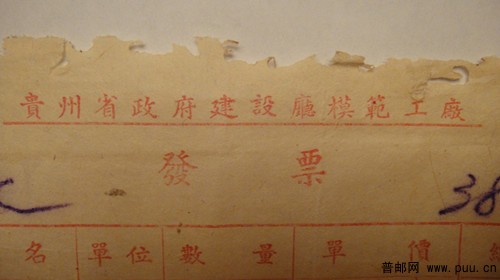 貴州省政府建設廳模範工廠
發票
38
名 單位 數量 單價
普邮网 www.puu.cn